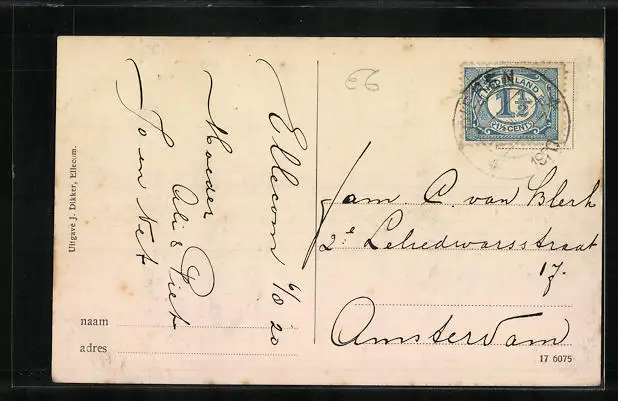 Uitgave J. Dikker, Ellecom.
Ellecom 6/8 20
Moeder
Ali & Piet
Jo en Net
naam
adres
NEDERLAND
1½
1½ CENT
1920
Fam C. van Blerk
2e Leliedwarsstraat
17.
Amsterdam
17 6075